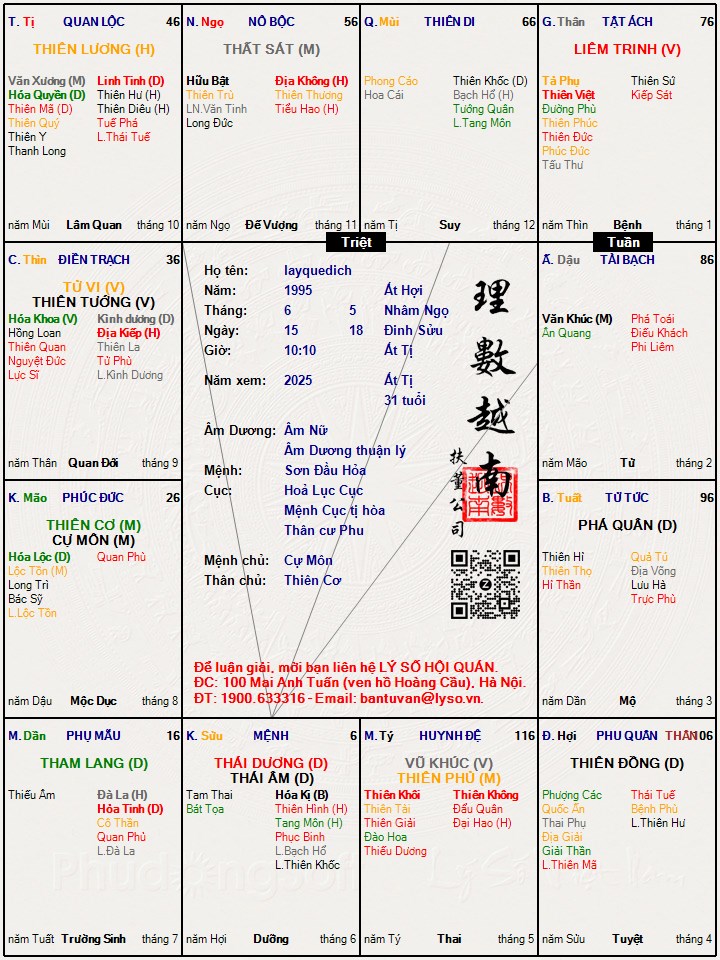 T. Tị QUAN LỘC 46
THIÊN LƯƠNG (H)
Văn Xương (M) Linh Tinh (D)
Hóa Quyền (D) Thiên Hư (H)
Thiên Mã (D) Thiên Diêu (H)
Thiên Quý Tuế Phá
Thiên Y L.Thái Tuế
Thanh Long
năm Mùi Lâm Quan tháng 10
N. Ngọ NÔ BỘC 56
THẤT SÁT (M)
Hữu Bật Địa Không (H)
Thiên Trù Thiên Thương
LN.Văn Tinh Tiểu Hao (H)
Long Đức
năm Ngọ Đế Vượng tháng 11
Q. Mùi THIÊN DI 66
Phong Cáo Thiên Khốc (D)
Hoa Cái Bạch Hổ (H)
Tướng Quân
L.Tang Môn
năm Tị Suy tháng 12
G. Thân TẬT ÁCH 76
LIÊM TRINH (V)
Tả Phụ Thiên Sứ
Thiên Việt Kiếp Sát
Đường Phù
Thiên Phúc
Thiên Đức
Phúc Đức
Tấu Thư
năm Thìn Bệnh tháng 1
Triệt
Tuần
C. Thìn ĐIỀN TRẠCH 36
TỬ VI (V)
THIÊN TƯỚNG (V)
Hóa Khoa (V) Kình dương (D)
Hồng Loan Địa Kiếp (H)
Thiên Quan Thiên La
Nguyệt Đức Tử Phù
Lực Sĩ L.Kình Dương
năm Thân Quan Đới tháng 9
Họ tên: layquedich
Năm: 1995 Ất Hợi
Tháng: 6 5 Nhâm Ngọ
Ngày: 15 18 Đinh Sửu
Giờ: 10:10 Ất Tị
Năm xem: 2025 Ất Tị
31 tuổi
Âm Dương: Âm Nữ
Âm Dương thuận lý
Mệnh: Sơn Đầu Hỏa
Cục: Hoả Lục Cục
Mệnh Cục tị hòa
Thân cư Phu
Mệnh chủ: Cự Môn
Thân chủ: Thiên Cơ
理數越南
扶董公司
Để luận giải, mời bạn liên hệ LÝ SỐ HỘI QUÁN.
ĐC: 100 Mai Anh Tuấn (ven hồ Hoàng Cầu), Hà Nội.
ĐT: 1900.633316 - Email: bantuvan@lyso.vn.
Ấ. Dậu TÀI BẠCH 86
Văn Khúc (M) Phá Toái
Ân Quang Điếu Khách
Phi Liêm
năm Mão Tử tháng 2
K. Mão PHÚC ĐỨC 26
THIÊN CƠ (M)
CỰ MÔN (M)
Hóa Lộc (D) Quan Phù
Lộc Tồn (M)
Long Trì
Bác Sỹ
L.Lộc Tồn
năm Dậu Mộc Dục tháng 8
B. Tuất TỬ TỨC 96
PHÁ QUÂN (D)
Thiên Hỉ Quả Tú
Thiên Thọ Địa Võng
Hỉ Thần Lưu Hà
Trực Phù
năm Dần Mộ tháng 3
M. Dần PHỤ MẪU 16
THAM LANG (D)
Thiếu Âm Đà La (H)
Hỏa Tinh (D)
Cô Thần
Quan Phủ
L.Đà La
năm Tuất Trường Sinh tháng 7
K. Sửu MỆNH 6
THÁI DƯƠNG (D)
THÁI ÂM (D)
Tam Thai Hóa Kị (B)
Bát Tọa Thiên Hình (H)
Tang Môn (H)
Phục Binh
L.Bạch Hổ
L.Thiên Khốc
năm Hợi Dưỡng tháng 6
M. Tý HUYNH ĐỆ 116
VŨ KHÚC (V)
THIÊN PHỦ (M)
Thiên Khôi Thiên Không
Thiên Tài Đẩu Quân
Thiên Giải Đại Hao (H)
Đào Hoa
Thiếu Dương
năm Tý Thai tháng 5
Đ. Hợi PHU QUÂN THÂN 106
THIÊN ĐỒNG (D)
Phượng Các Thái Tuế
Quốc Ấn Bệnh Phù
Thai Phụ L.Thiên Hư
Địa Giải
Giải Thần
L.Thiên Mã
năm Sửu Tuyệt tháng 4